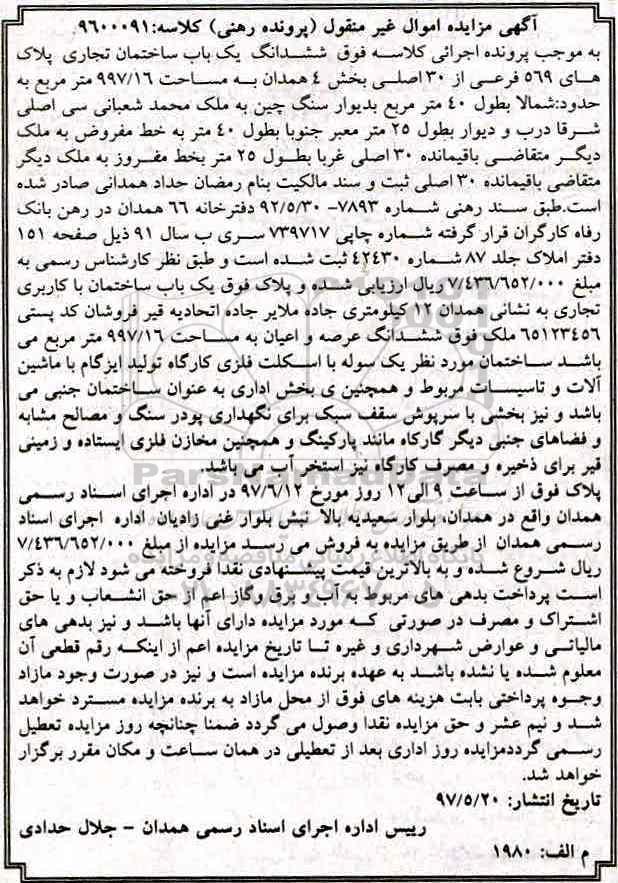 آگهی مزایده اموال غیر منقول (پرونده رهنی) کلاسه:۹۶۰۰۰۹۱
به موجب پرونده اجرائی کلاسه فوق ششدانگ یک باب ساختمان تجاری پلاک
های ۵۶۹ فرعی از ۳۰ اصلی بخش ۴ همدان به مساحت ۹۹۷/۱۶ متر مربع به
حدود:شمالا بطول ۴۰ متر مربع بدیوار سنگ چین به ملک محمد شعبانی سی اصلی
شرقا درب و دیوار بطول ۲۵ متر معبر جنوبا بطول ۴۰ متر به خط مفروض به ملک
دیگر متقاضی باقیمانده ۳۰ اصلی غربا بطول ۲۵ متر بخط مفروز به ملک دیگر
متقاضی باقیمانده ۳۰ اصلی ثبت و سند مالکیت بنام رمضان حداد همدانی صادر شده
است.طبق سند رهنی شماره ۷۸۹۳- ۹۲/۵/۳۰ دفترخانه ۶۶ همدان در رهن بانک
رفاه کارگران قرار گرفته شماره چاپی ۷۳۹۷۱۷ سری ب سال ۹۱ ذیل صفحه ۱۵۱
دفتر املاک جلد ۸۷ شماره ۴۲۴۳۰ ثبت شده است و طبق نظر کارشناس رسمی به
مبلغ ۷/۴۳۶/۶۵۲/۰۰۰ ریال ارزیابی شده و پلاک فوق یک باب ساختمان با کاربری
تجاری به نشانی همدان ۱۲ کیلومتری جاده ملایر جاده اتحادیه قیر فروشان کد پستی
۶۵۱۲۳۴۵۶ ملک فوق ششدانگ عرصه و اعیان به مساحت ۹۹۷/۱۶ متر مربع می
باشد ساختمان مورد نظر یک سوله با اسکلت فلزی کارگاه تولید ایزگام با ماشین
آلات و تاسیسات مربوط و همچنین ی بخش اداری به عنوان ساختمان جنبی می
باشد و نیز بخشی با سرپوش سقف سبک برای نگهداری پودر سنگ و مصالح مشابه
و فضاهای جنبی دیگر گارکاه مانند پارکینگ و همچنین مخازن فلزی ایستاده و زمینی
قیر برای ذخیره و مصرف کارگاه نیز استخر آب می باشد.
پلاک فوق از ساعت ۹ الی۱۲ روز مورخ ۹۷/۶/۱۲ در اداره اجرای اسناد رسمی
همدان واقع در همدان، بلوار سعیدیه بالا نبش بلوار غنی زادیان، اداره اجرای اسناد
رسمی همدان از طریق مزایده به فروش می رسد مزایده از مبلغ ۷/۴۳۶/۶۵۲/۰۰۰
ریال شروع شده و به بالاترین قیمت پیشنهادی نقدا فروخته می شود لازم به ذکر
است پرداخت بدهی های مربوط به آب و برق وگاز اعم از حق انشعاب و یا حق
اشتراک و مصرف در صورتی که مورد مزایده دارای آنها باشد و نیز بدهی های
مالیاتی و عوارض شهرداری و غیره تا تاریخ مزایده اعم از اینکه رقم قطعی آن
معلوم شده یا نشده باشد به عهده برنده مزایده است و نیز در صورت وجود مازاد
وجوه پرداختی بابت هزینه های فوق از محل مازاد به برنده مزایده مسترد خواهد
شد و نیم عشر و حق مزایده نقدا وصول می گردد ضمنا چنانچه روز مزایده تعطیل
رسمی گرددمزایده روز اداری بعد از تعطیلی در همان ساعت و مکان مقرر برگزار
خواهد شد.
تاریخ انتشار: ۹۷/۵/۲۰
رییس اداره اجرای اسناد رسمی همدان - جلال حدادی
م الف: ۱۹۸۰
ParsNamadData